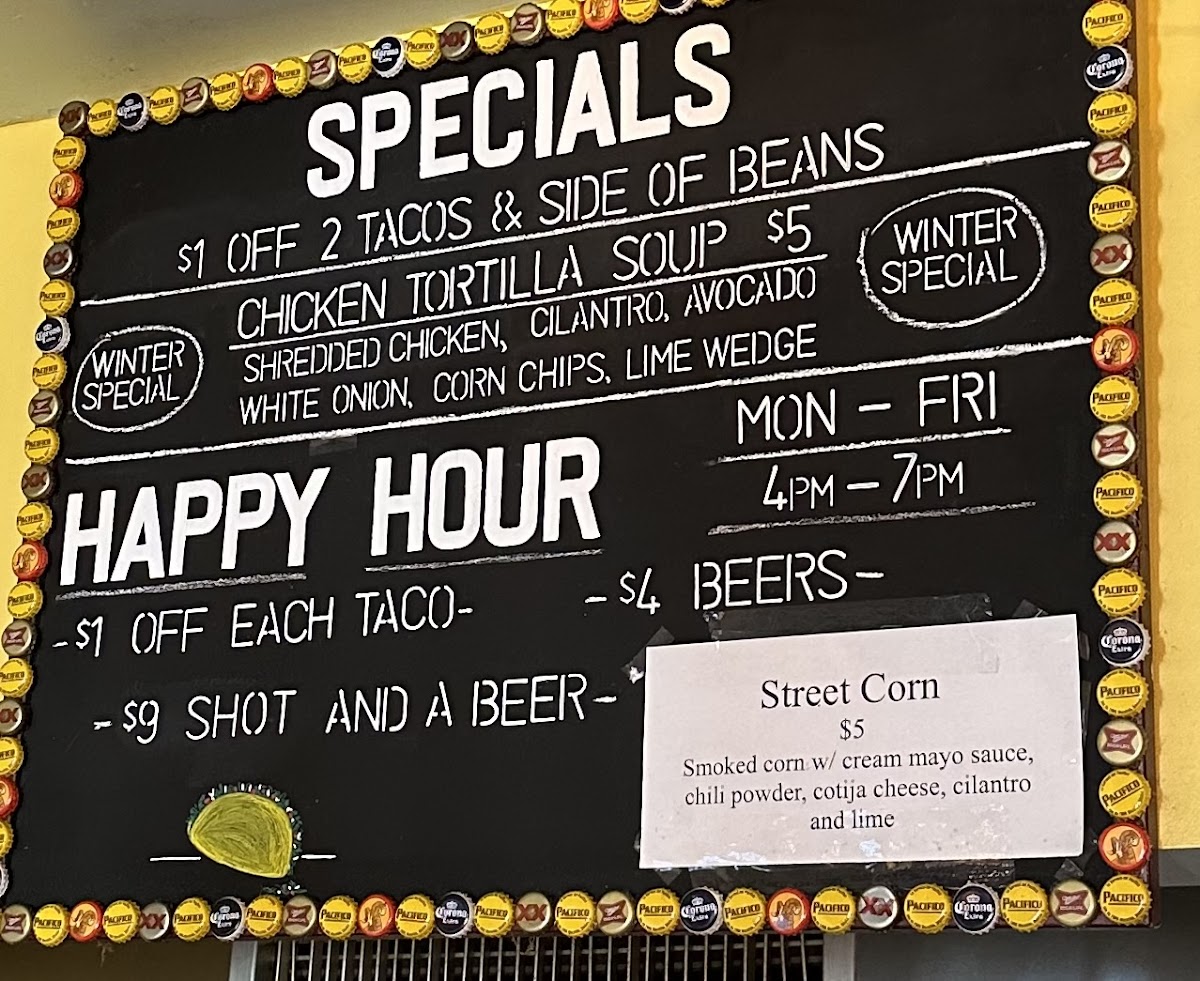 SPECIALS
$1 OFF 2 TACOS & SIDE OF BEANS
CHICKEN TORTILLA SOUP $5
WINTER
SPECIAL
WINTER
SPECIAL
SHREDDED CHICKEN, CILANTRO, AVOCADO
WHITE ONION, CORN CHIPS, LIME WEDGE
HAPPY HOUR
MON - FRI
4PM - 7PM
-$1 OFF EACH TACO-
-$4 BEERS-
-$9 SHOT AND A BEER-
Street Corn
$5
Smoked corn w/ cream mayo sauce,
chili powder, cotija cheese, cilantro
and lime
PACIFICO
Corona
Extra
XX